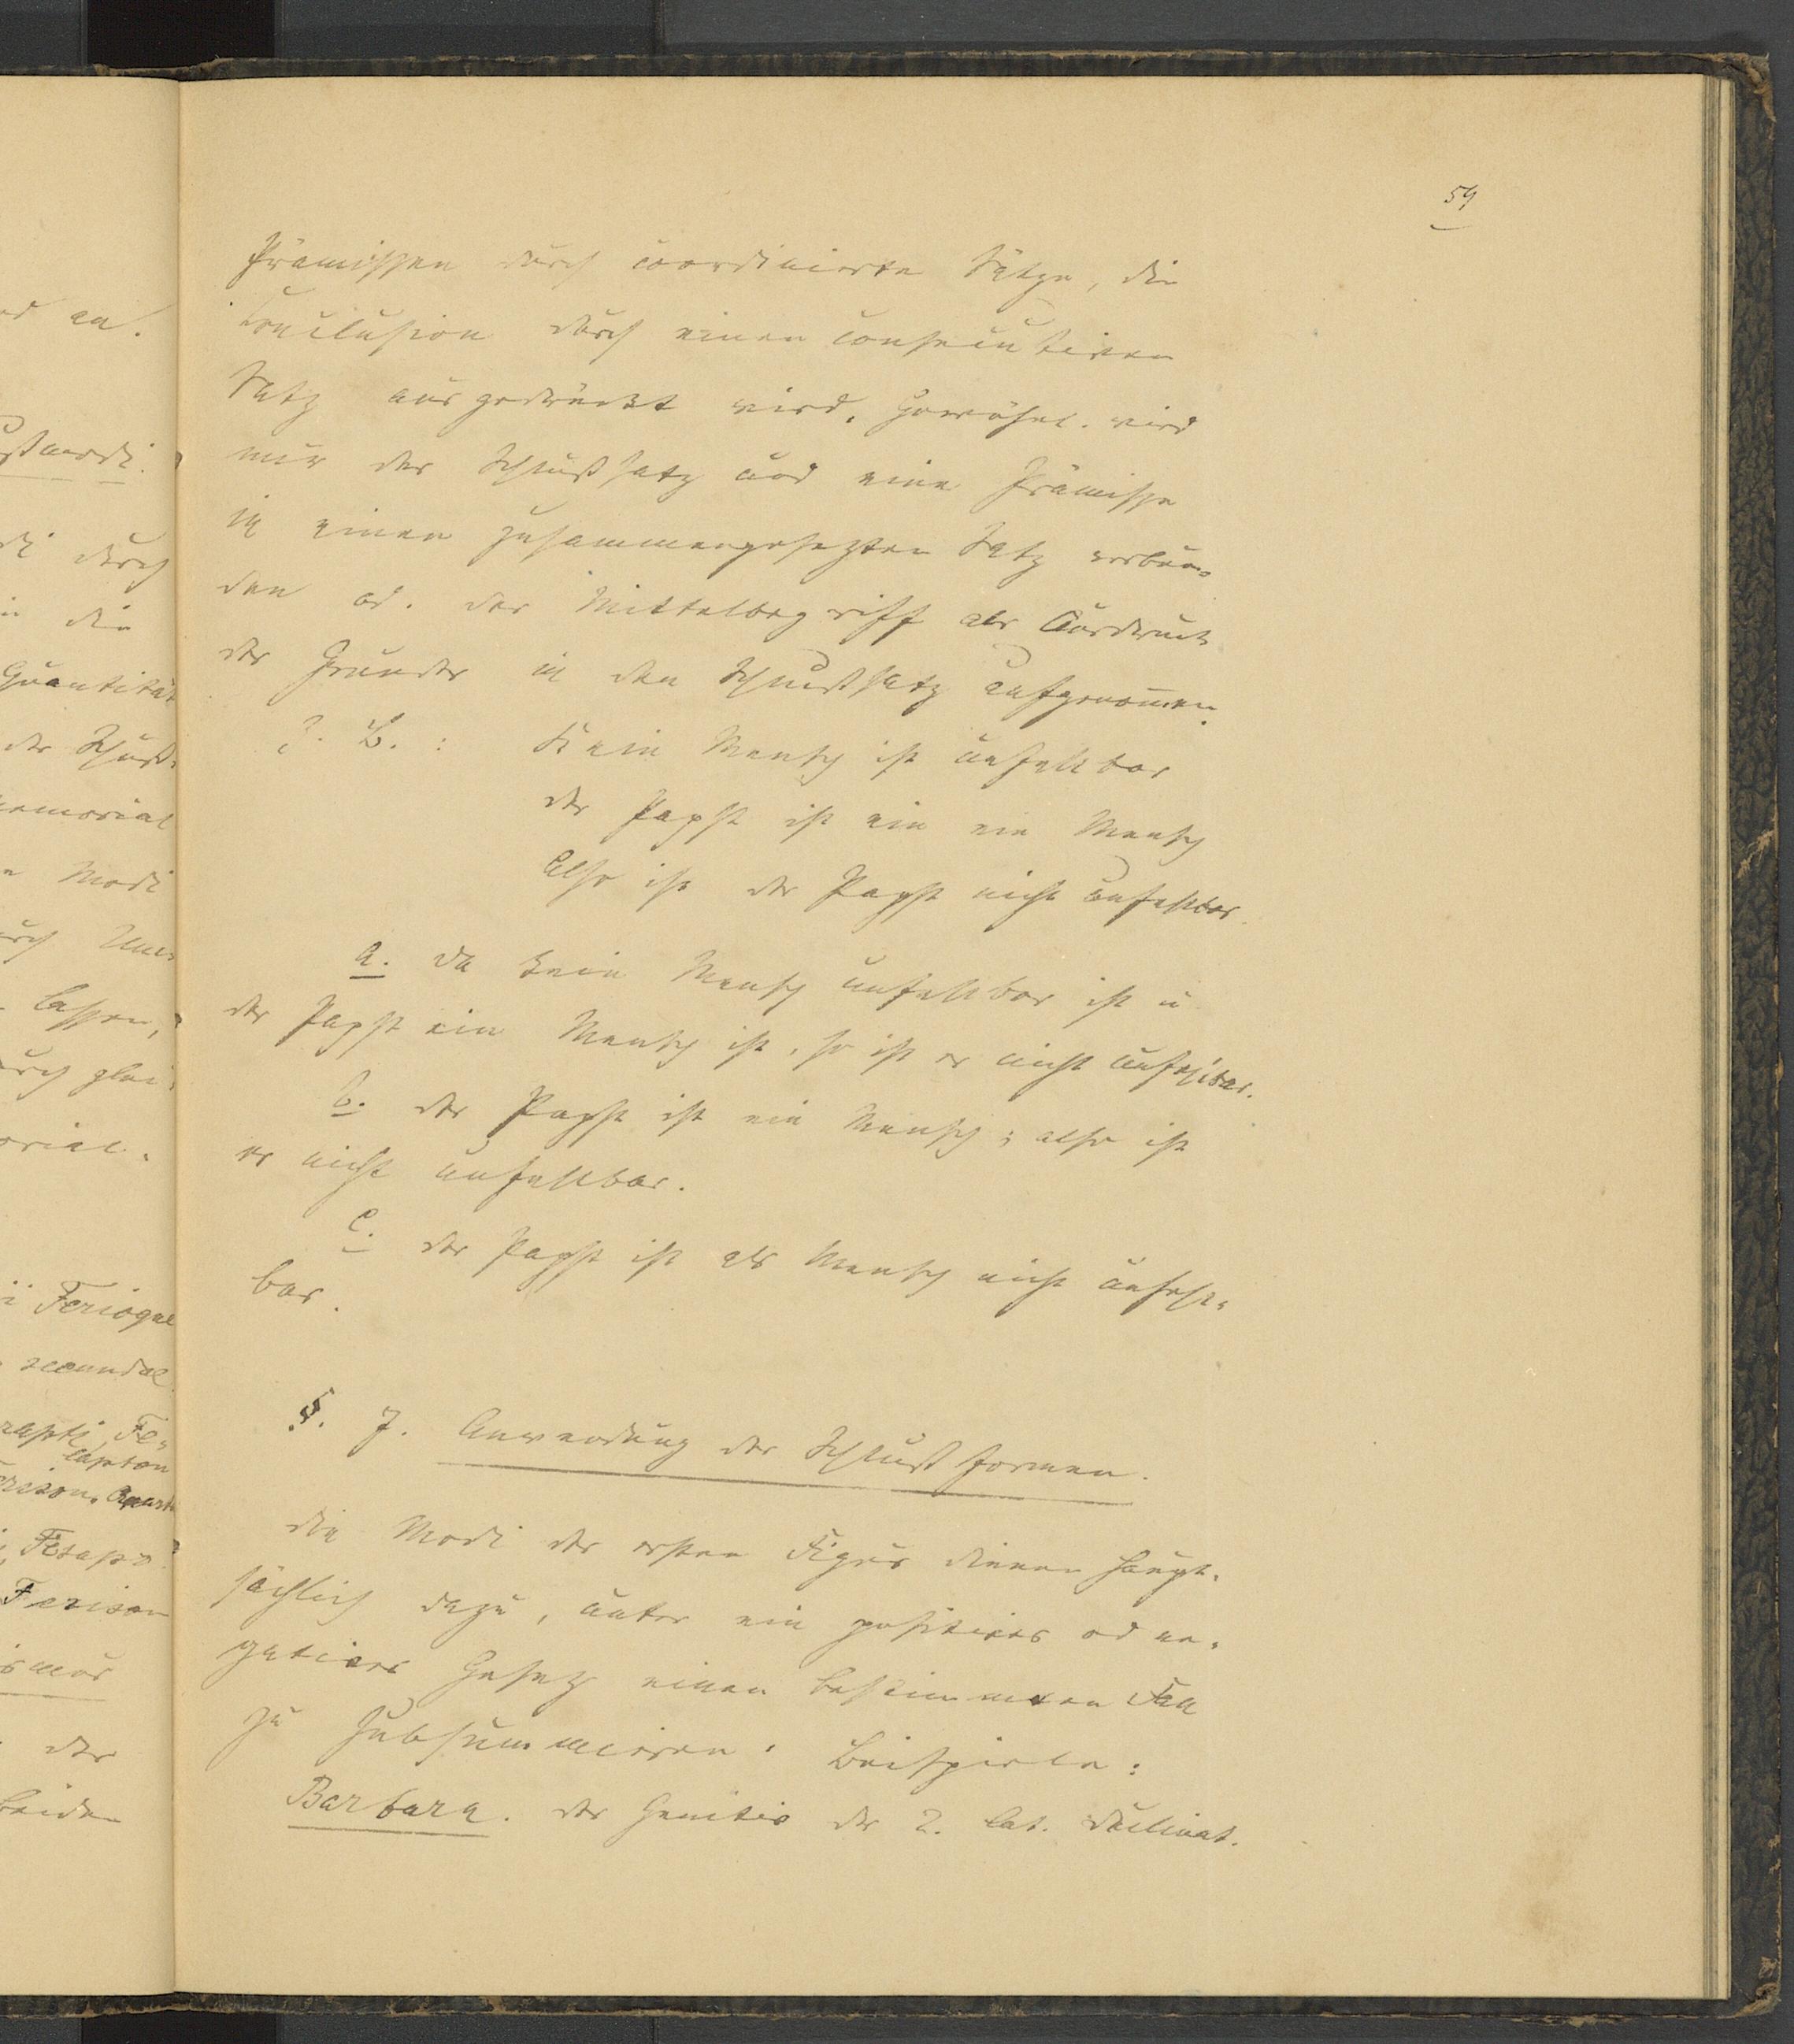 59
Prämissen durch coordinierte Sätze, die
Conclusion durch einen consecutiven
Satz ausgedrückt wird. Gewöhnl. wird
nur der Schlußsatz und eine Prämisse
in einen zusammengesetzten Satz verbun-
den od. der Mittelbegriff als Ausdruck
des Grundes in den Schlußsatz aufgenom̅en.
z. B. : Kein Mensch ist unfehlbar
der Papst ist ein ein Mensch
Also ist der Papst nicht unfehlbar.
a. da kein Mensch unfehlbar ist u
der Papst ein Mensch ist, so ist er nicht unfehlbar.
b. der Papst ist ein Mensch; also ist
er nicht unfehlbar.
c. der Papst ist als Mensch nicht unfehl-
bar.
§. 7. Anwendung der Schlußformen.
die Modi der ersten Figur dienen haupt-
sächlich dazu, unter ein positives od ne-
gatives Gesetz einen bestimmten Fall
zu subsummieren. Beispiele:
Barbara. der Genitiv der 2. lat. Declinat.